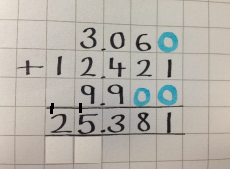 3.060
+ 12.421
9.900
25.381